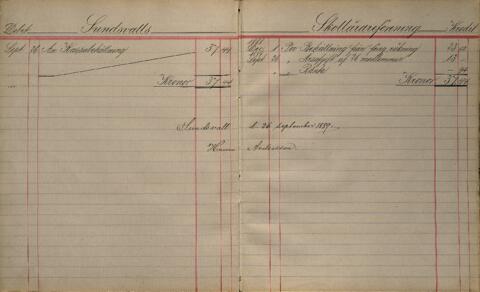 Debet Sundsvalls Skollärareförening Kredit
Sept 26 An Kassabehållning 37 44
Kronor 37 44
1 Per Behållning från föreg. räkning
Sept 26 " Årsafgift af 16 medlemmar
Kronor 37 44
Sundsvall d. 26 september 1889.
Andersson